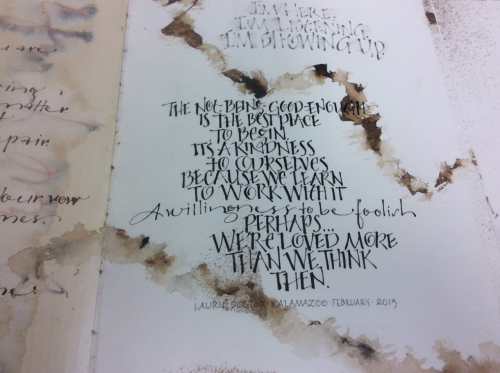 are
matter
pair.
your vow
I'M HERE.
I'M LISTENING.
I'M SHOWING UP.
THE NOT-BEING GOOD-ENOUGH
IS THE BEST PLACE
TO BEGIN.
IT'S A KINDNESS
TO OURSELVES
BECAUSE WE LEARN
TO WORK WITH IT
A willingness to be foolish
PERHAPS...
WE'RE LOVED MORE
THAN WE THINK
THEN.
LAURIE DOCTOR · KALAMAZOO · FEBRUARY · 2013